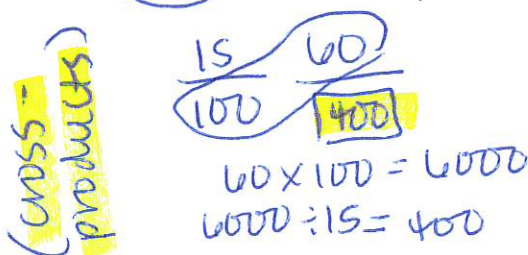 (cross-
products)
15 60
100 400
60 x 100 = 6000
6000 ÷ 15 = 400